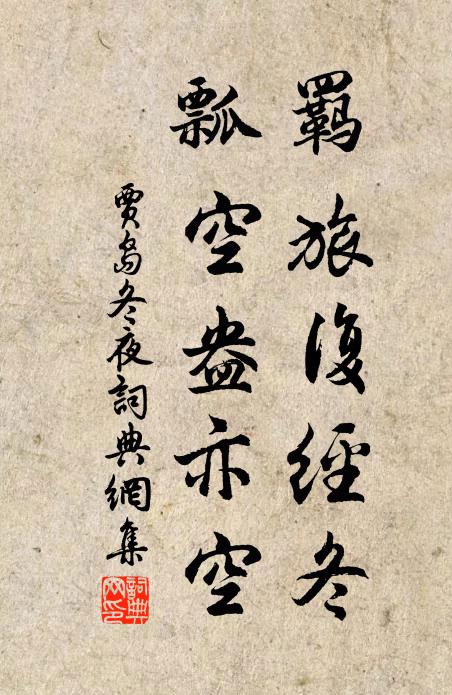 羈旅復經冬
瓢空盎亦空
賈島冬夜詞典網集
詞典網印